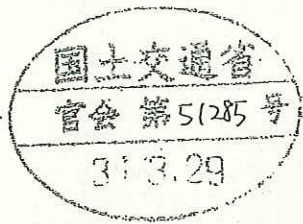 国土交通省
官会 第51285号
31.3.29